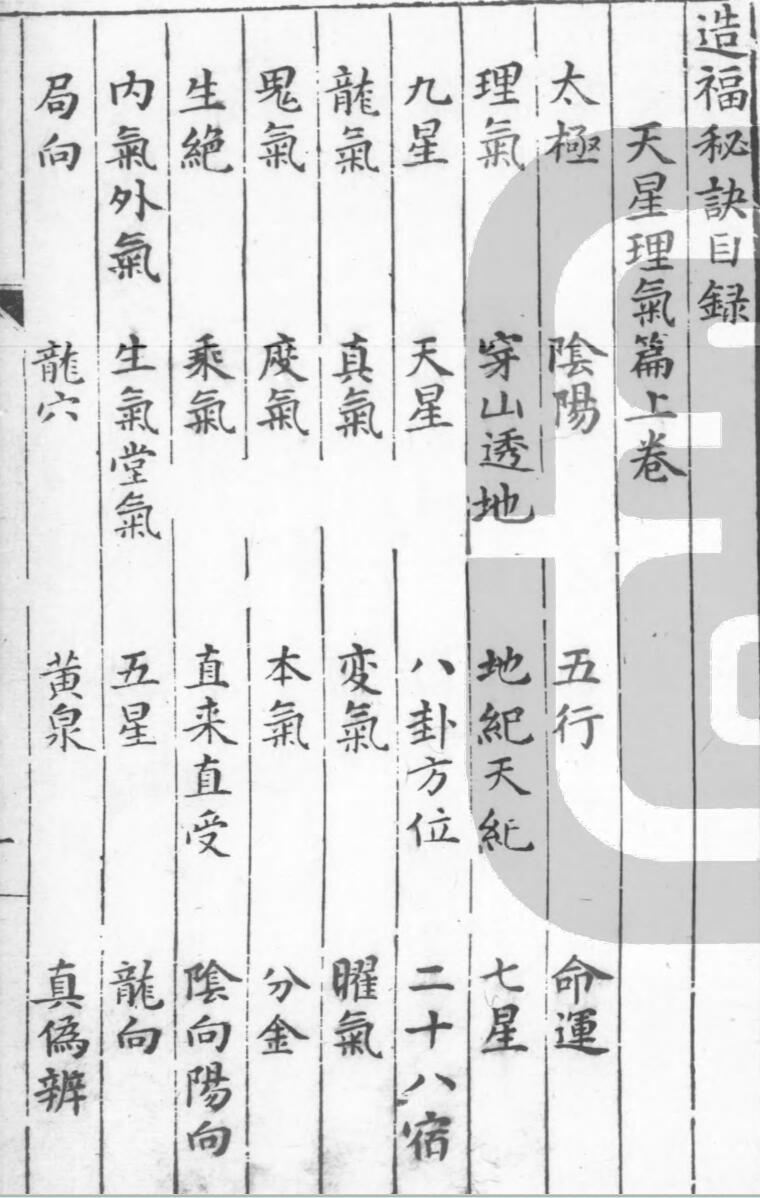 造福秘訣目録
天星理氣篇上卷
太極 陰陽 五行 命運
理氣 穿山透地 地紀天紀 七星
九星 天星 八卦方位 二十八宿
龍氣 真氣 変氣 曜氣
鬼氣 廢氣 本氣 分金
生絕 乘氣 直来直受 陰向陽向
内氣外氣 生氣堂氣 五星 龍向
局向 龍穴 黄泉 真僞辨